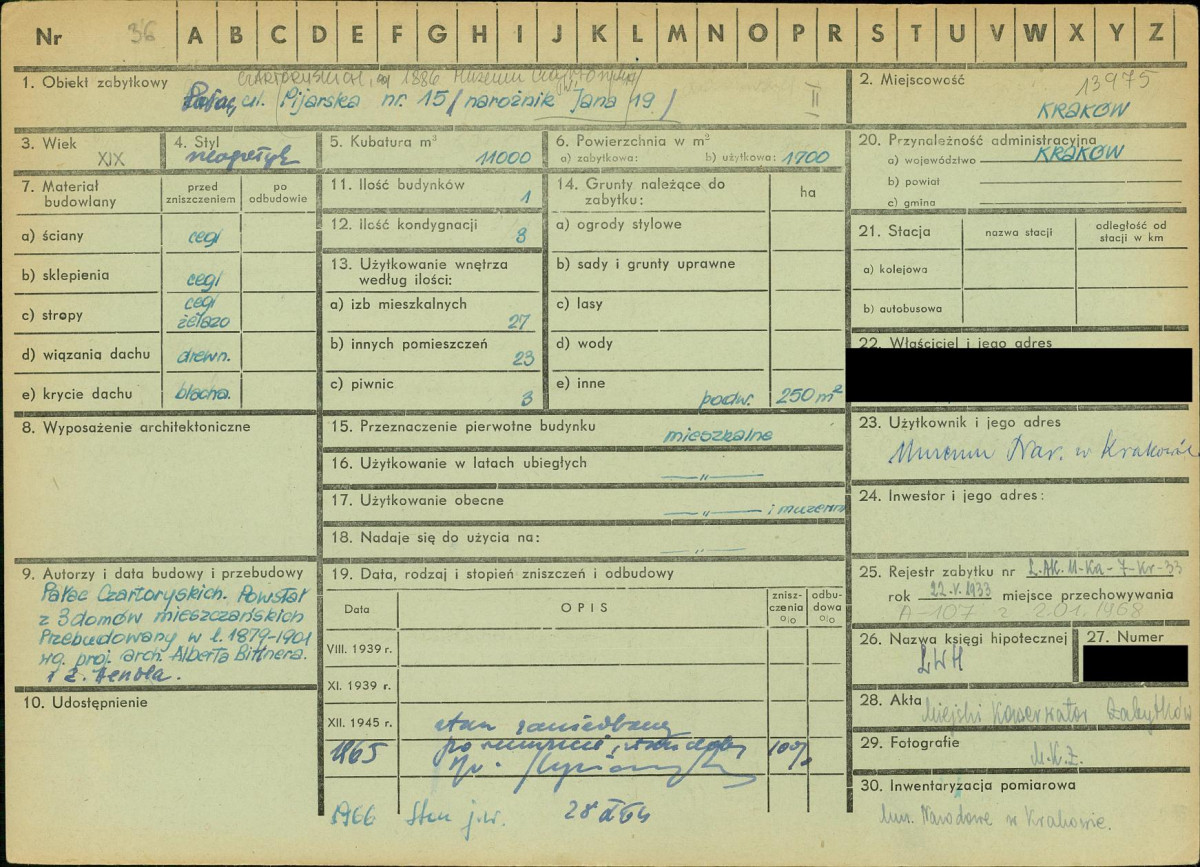 Nr 36 A B C D E F G H I J K L M N O P R S T U V W X Y Z
CZARTORYSKICH, od 1886 Muzeum Czartoryskich
1. Obiekt zabytkowy
Pałac, ul. Pijarska nr. 15 / narożnik Jana 19 / II
2. Miejscowość 13975
KRAKÓW
3. Wiek XIX
4. Styl neogotyk
5. Kubatura m³ 11000
6. Powierzchnia w m²
a) zabytkowa: b) użytkowa: 1700
20. Przynależność administracyjna
a) województwo KRAKÓW
b) powiat
c) gmina
7. Materiał budowlany
przed zniszczeniem
po odbudowie
a) ściany cegł
b) sklepienia cegł
c) stropy cegł żelazo
d) wiązania dachu drewn.
e) krycie dachu blacha.
11. Ilość budynków 1
12. Ilość kondygnacji 3
13. Użytkowanie wnętrza
według ilości:
a) izb mieszkalnych 27
b) innych pomieszczeń 23
c) piwnic 3
14. Grunty należące do
zabytku: ha
a) ogrody stylowe
b) sady i grunty uprawne
c) lasy
d) wody
e) inne podw. 250 m²
21. Stacja
nazwa stacji
odległość od
stacji w km
a) kolejowa
b) autobusowa
22. Właściciel i jego adres
8. Wyposażenie architektoniczne
15. Przeznaczenie pierwotne budynku mieszkalne
16. Użytkowanie w latach ubiegłych —„—
17. Użytkowanie obecne —„— i muzeum
18. Nadaje się do użycia na: —„—
23. Użytkownik i jego adres
Muzeum Nar. w Krakowie
24. Inwestor i jego adres:
9. Autorzy i data budowy i przebudowy
Pałac Czartoryskich. Powstał
z 3 domów mieszczańskich
Przebudowany w l. 1879-1901
wg. proj. arch. Alberta Bittnera.
10. Udostępnienie
19. Data, rodzaj i stopień zniszczeń i odbudowy
Data
OPIS
znisz-
czenia
%
odbu-
dowa
%
VIII. 1939 r.
XI. 1939 r.
XII. 1945 r. stan zaniedbany
1965 po remoncie, stan dobry 10%
1966 Stan j.w. 28 64
25. Rejestr zabytku nr L.AK.M-Ka-7-Kr-33
rok 22.V.1933 miejsce przechowywania
A-107 z 2.01.1968
26. Nazwa księgi hipotecznej
LWH
27. Numer
28. Akta Miejski Konserwator Zabytków
29. Fotografie
M.K.Z.
30. Inwentaryzacja pomiarowa
Muz. Narodowe w Krakowie.